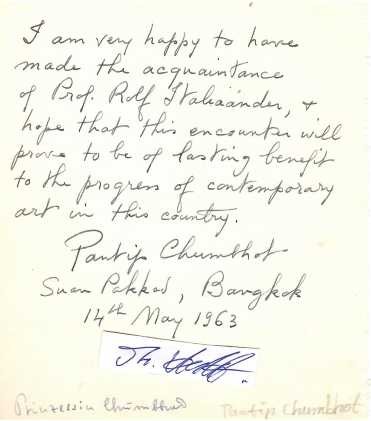 I am very happy to have
made the acquaintance
of Prof. Rolf Italiaander, +
hope that this encounter will
prove to be of lasting benefit
to the progress of contemporary
art in this country.
Pantip Chumbhot
Suan Pakkad, Bangkok
14th May 1963
Prinzessin Chumbhot
Pantip Chumbhot